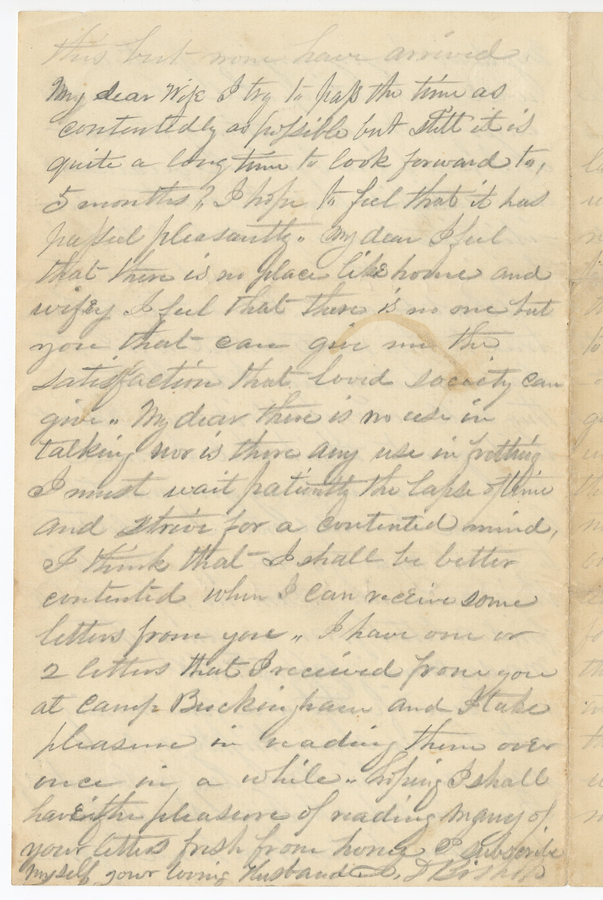 this but none have arrived.
My dear Wife I try to pass the time as
contentedly as possible but still it is
quite a long time to look forward to,
5 months,, I hope to feel that it has
passed pleasantly,, My dear I feel
that there is no place like home and
wifey I feel that there is no one but
you that can give me the
satisfaction that loved society can
give,, My dear there is no use in
talking nor is there any use in fretting
I must wait patiently the lapse of time
and strive for a contented mind,
I think that I shall be better
contented when I can receive some
letters from you,, I have one or
2 letters that I received from you
at Camp Buckingham and I take
pleasure in reading them over
once in a while,, hoping I shall
have the pleasure of reading many of
your letters fresh from home I subscribe
myself your loving Husband